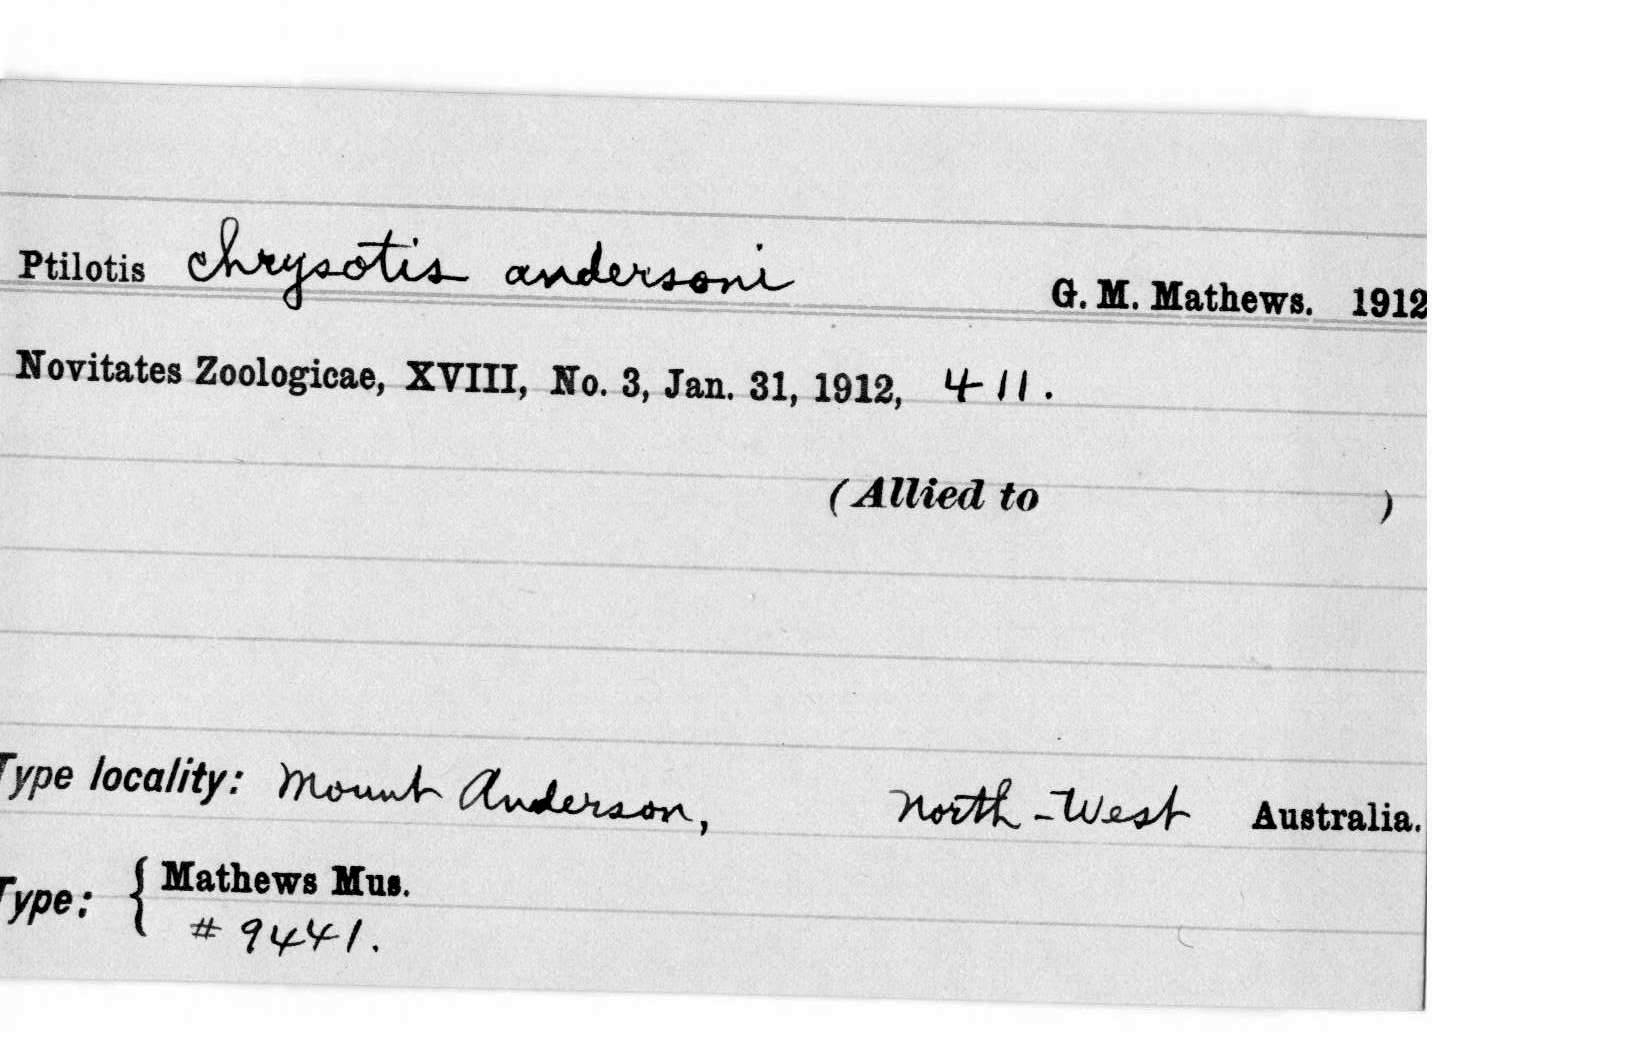 Ptilotis chrysotis andersoni G. M. Mathews. 1912
Novitates Zoologicae, XVIII, No. 3, Jan. 31, 1912, 411.
(Allied to )
Type locality: Mount Anderson, North-West Australia.
Type: { Mathews Mus.
# 9441.